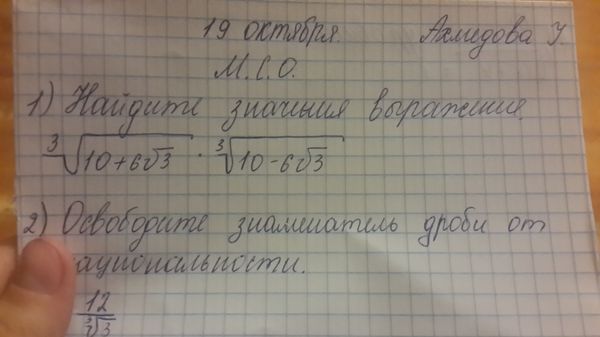 19 октября. Ахмедова У.
М.С.О.
1) Найдите значения выражения.
∛(10+6√3) · ∛(10-6√3)
2) Освободите знаменатель дроби от
ациональности.
12/∛3